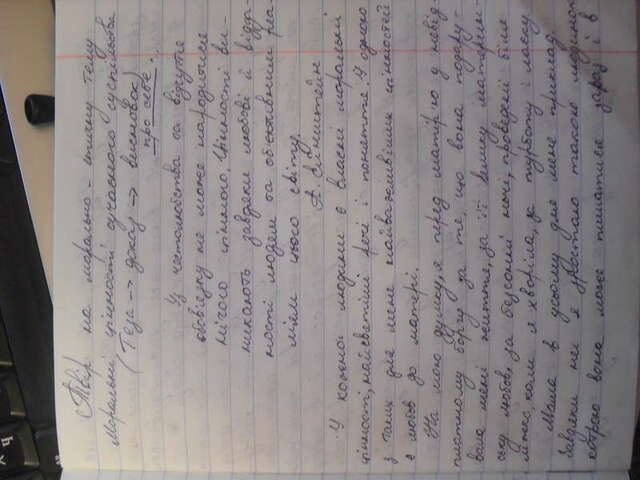 Твір на морально-етичну тему
Моральні цінності сучасного суспільства
(Теза → доказ → висновок)
про себе...
"З честолюбства чи відчуття
обов'язку не може народитися
нічого цінного. Цінності ви-
никають завдяки любові й відда-
ності людям та об'єктивним реа-
ліям цього світу.
А. Ейнштейн
У кожної людини є власні моральні
цінності, найсвятіші речі і поняття. І одною
з таких для мене найважливіших цінностей
є любов до матері.
На мою думку, я перед матір'ю у невід-
платному боргу за те, що вона подару-
вала мені життя, за її велику материн-
ську любов, за безсонні ночі, проведені біля
ліжка, коли я хворіла, за турботу і ласку.
Мама в усьому для мене приклад.
Завдяки неї я зростаю такою людиною,
котрою вона може пишатися зараз і в